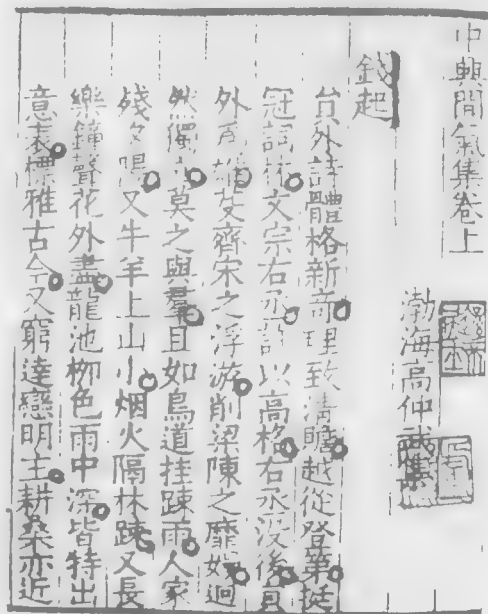 中興間氣集卷上
渤海高仲武集
錢起
貟外詩體格新竒理致清贍越從登第挺
冠詞林文宗右丞許以高格右丞没後貟
外爲雄芟齊宋之浮游削梁陳之靡嫚迥
然獨立莫之與羣且如鳥道挂踈雨人家
殘夕陽又牛羊上山小烟火隔林踈又長
樂鐘聲花外盡龍池柳色雨中深皆特出
意表標雅古今又窮達戀明主耕桑亦近